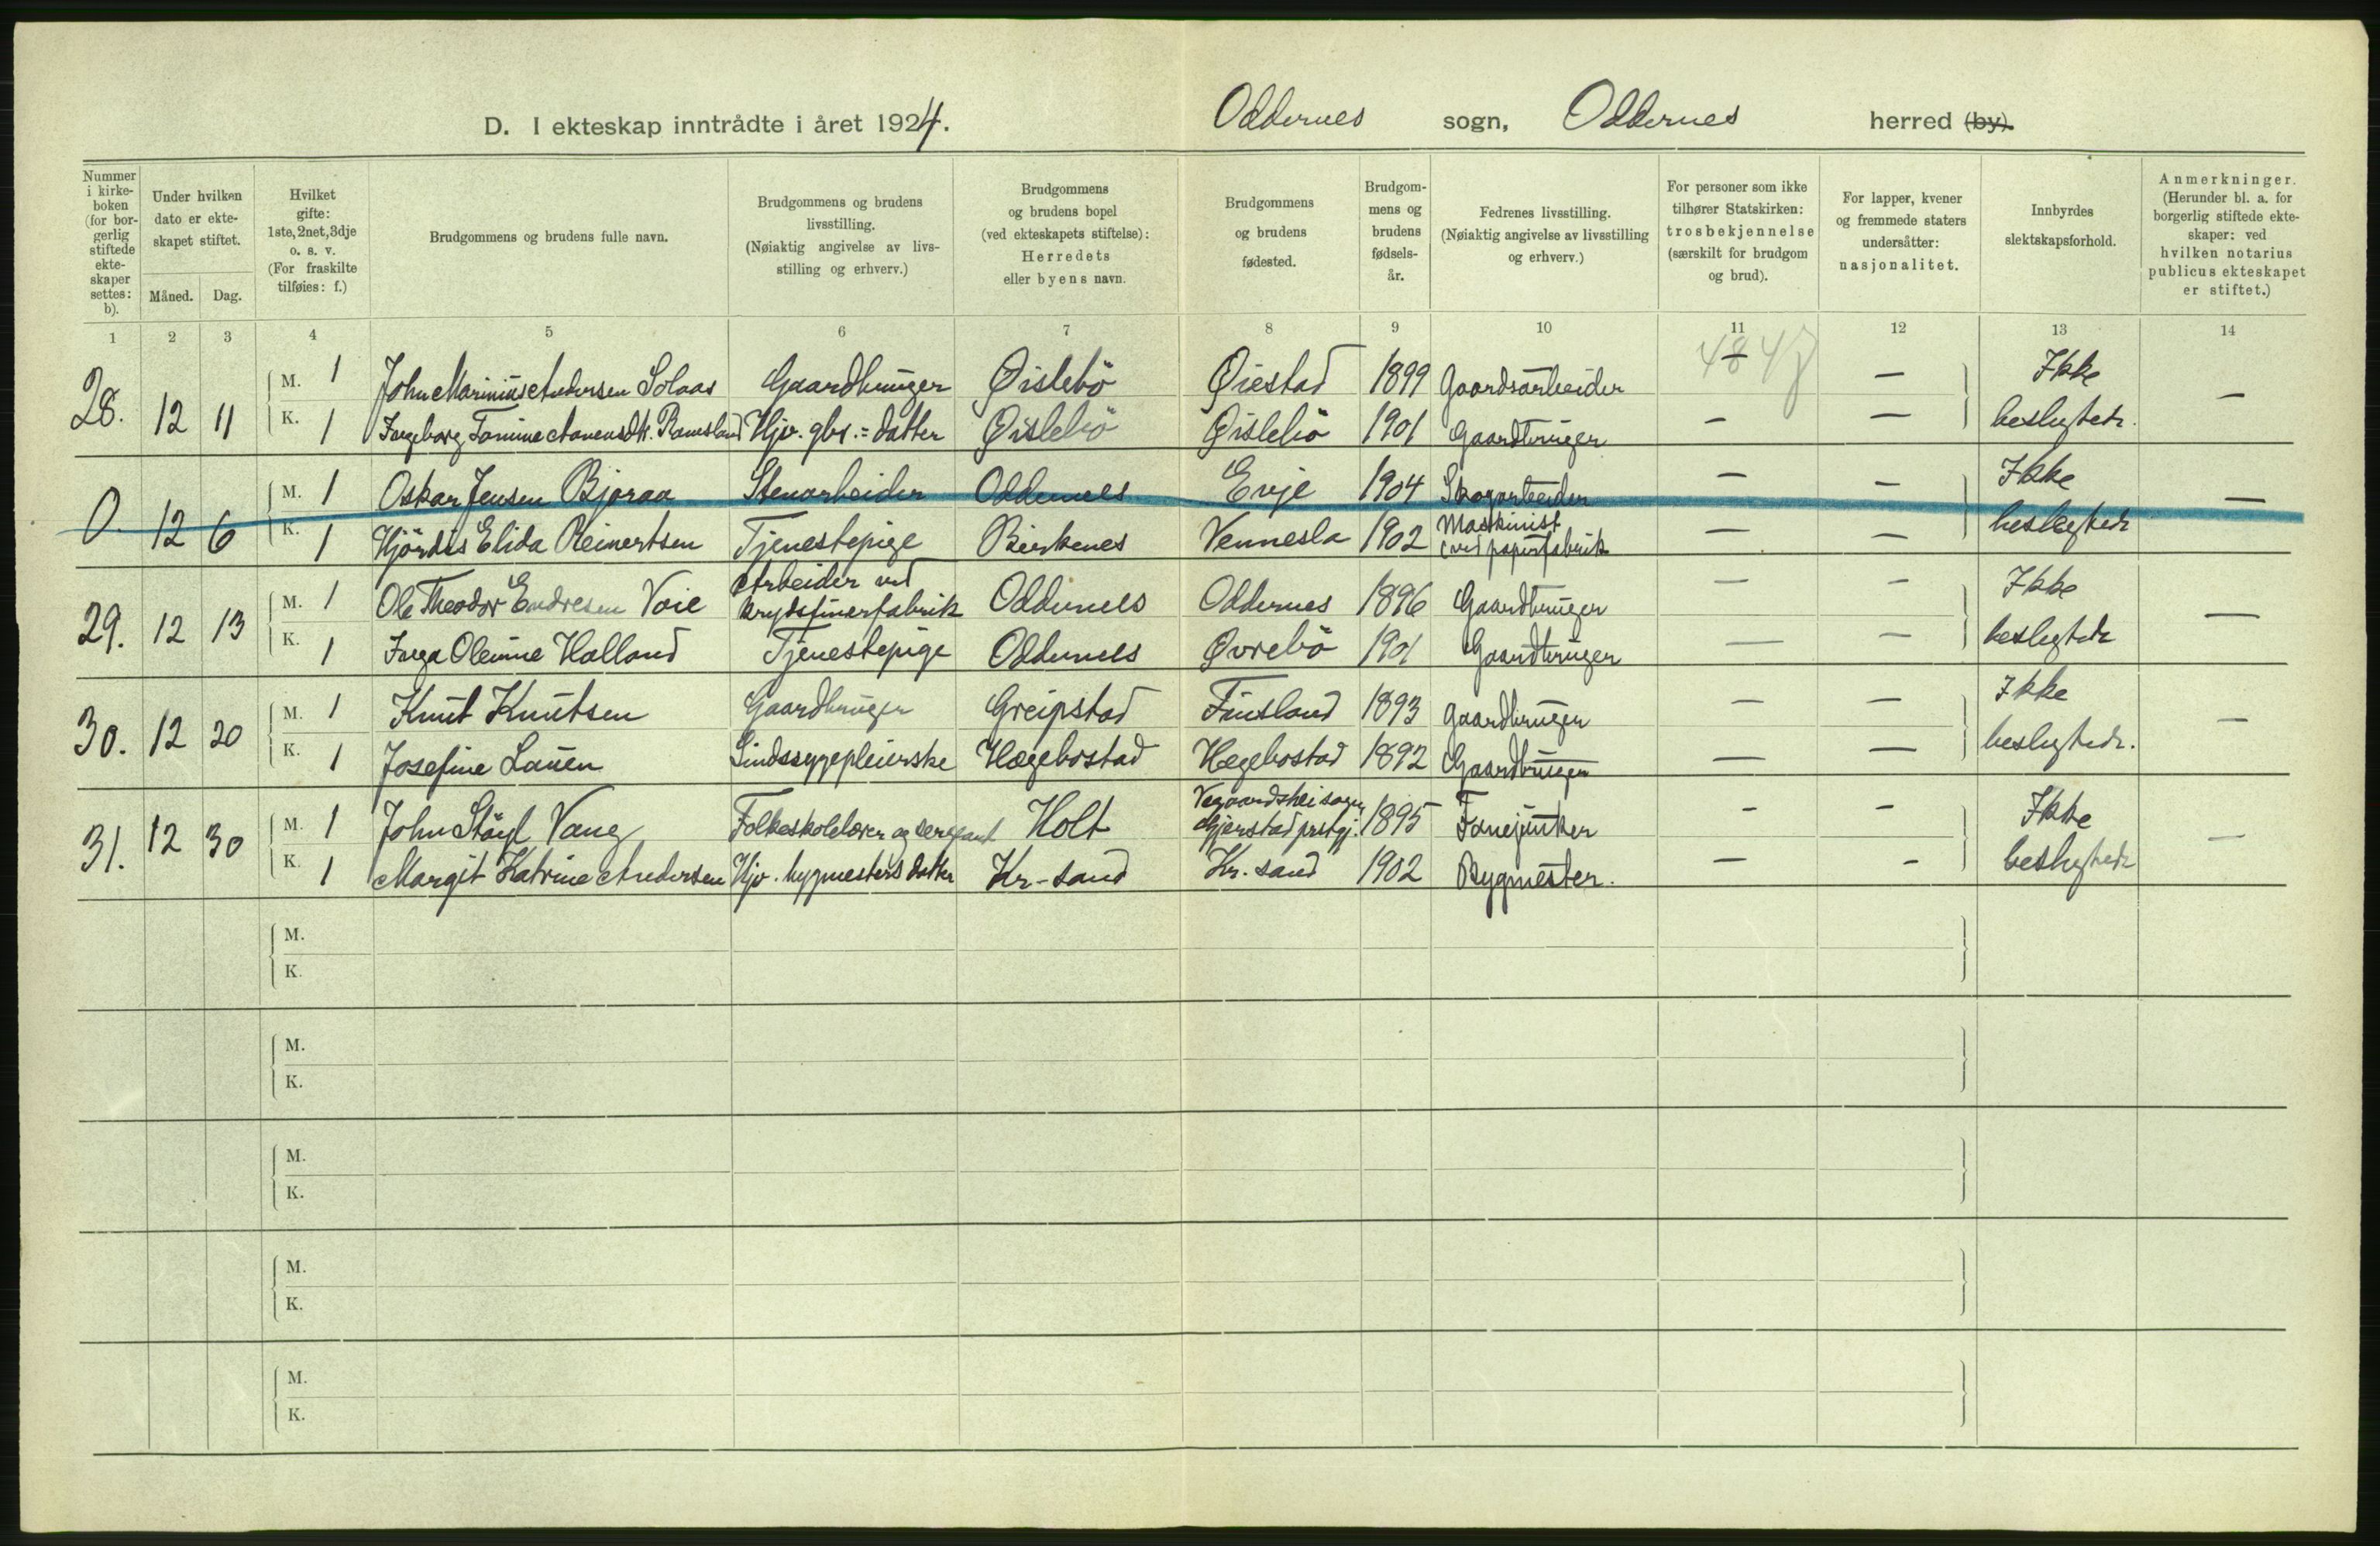 D. I ekteskap inntrådte i året 1924. Oddernes sogn, Oddernes herred (by).
Nummer i kirkeboken (for borgerlig stiftede ekteskaper settes: b).
Under hvilken dato er ekteskapet stiftet.
Måned. Dag.
Hvilket gifte: 1ste, 2net, 3dje o. s. v. (For fraskilte tilføies: f.)
Brudgommens og brudens fulle navn.
Brudgommens og brudens livsstilling. (Nøiaktig angivelse av livsstilling og erhverv.)
Brudgommens og brudens bopel (ved ekteskapets stiftelse): Herredets eller byens navn.
Brudgommens og brudens fødested.
Brudgommens og brudens fødselsår.
Fedrenes livsstilling. (Nøiaktig angivelse av livsstilling og erhverv.)
For personer som ikke tilhører Statskirken: trosbekjennelse (særskilt for brudgom og brud).
For lapper, kvener og fremmede staters undersåtter: nasjonalitet.
Innbyrdes slektskapsforhold.
Anmerkninger. (Herunder bl. a. for borgerlig stiftede ekteskaper: ved hvilken notarius publicus ekteskapet er stiftet.)
1 2 3 4 5 6 7 8 9 10 11 12 13 14
28. 12 11 M. 1 John Marinius Andersen Solaas Gaardbruger Øislebö Øiestad 1899 Gaardsarbeider — — Ikke —
K. 1 Ingeborg Tomine Aanensdtr. Ramesland Hjv. gbr. = datter Øislebö Øislebö 1901 Gaardbruger — — beslegtede.
0. 12 6 M. 1 Oskar Jensen Bjoraa Stenarbeider Oddernes Evje 1904 Skogarbeider — — Ikke —
K. 1 Hjördis Elida Reinertsen Tjenestepige Birkenes Vennesla 1902 Maskinist (ved papirfabrik — — beslegtede
29. 12 13 M. 1 Ole Theodor Endresen Voie Arbeider ved krydsfinerfabrik Oddernes Oddernes 1896 Gaardbruger — — Ikke —
K. 1 Inga Olemine Halland Tjenestepige Oddernes Øvrebö 1901 Gaardbruger — — beslegtede
30. 12 20 M. 1 Knut Knutsen Gaardbruger Greipstad Finsland 1893 Gaardbruger — — Ikke —
K. 1 Josefine Lauen Sindssygepleierske Hægebostad Hægebostad 1892 Gaardbruger — — beslegtede.
31. 12 30 M. 1 John Vang Folkeskolelærer og sergeant Holt Vegaardshei sogn Gjerstad prstgj. 1895 Fanejunker — — Ikke —
K. 1 Margit Katrine Andersen Hjv. bygmesters datter Kr-sand Kr. sand 1902 Bygmester. — — beslegtede
M.
K.
M.
K.
M.
K.
M.
K.
M.
K.